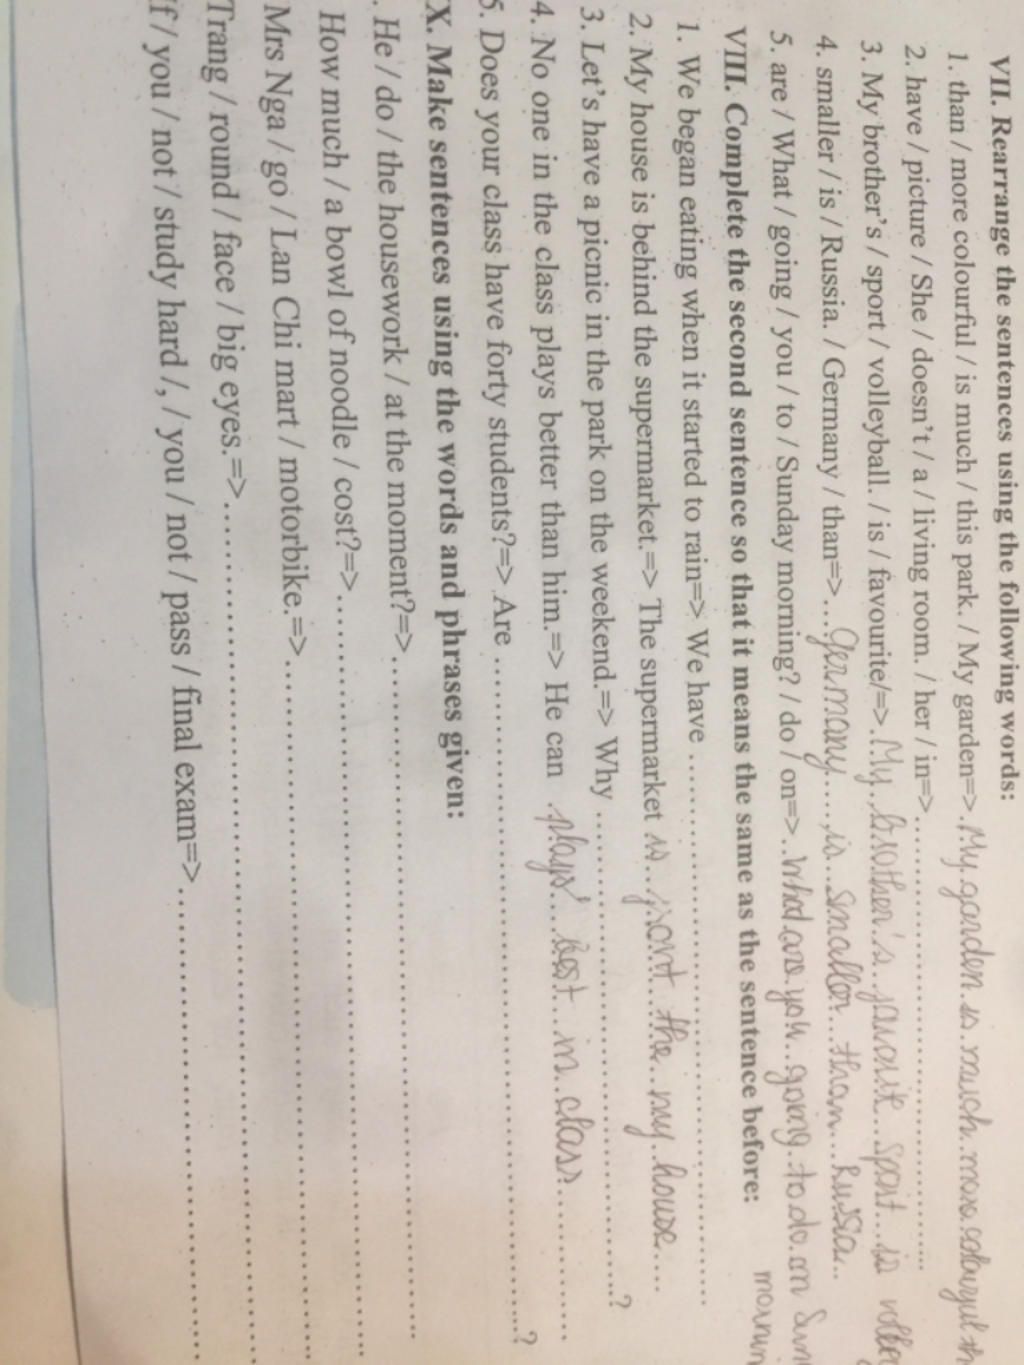 VII. Rearrange the sentences using the following words:
1. than / more colourful / is much / this park. / My garden=> My garden is much more colouyful th
2. have / picture / She / doesn't / a / living room. / her / in=>...............................
3. My brother's / sport / volleyball. / is / favourite/=> My brother's favouite sport is volley
4. smaller / is / Russia. / Germany / than=> Germany is smaller than Russia
5. are / What / going / you / to / Sunday morning? / do / on=> What are you going to do on Sun
mornin
VIII. Complete the second sentence so that it means the same as the sentence before:
1. We began eating when it started to rain=> We have ...............................
2. My house is behind the supermarket.=> The supermarket is front the my house
3. Let's have a picnic in the park on the weekend.=> Why ...............................?
4. No one in the class plays better than him.=> He can plays best in class
5. Does your class have forty students?=> Are ...............................?
X. Make sentences using the words and phrases given:
. He / do / the housework / at the moment?=>...............................
How much / a bowl of noodle / cost?=>...............................
Mrs Nga / go / Lan Chi mart / motorbike.=>...............................
Trang / round / face / big eyes.=>...............................
If / you / not / study hard /, / you / not / pass / final exam=>...............................